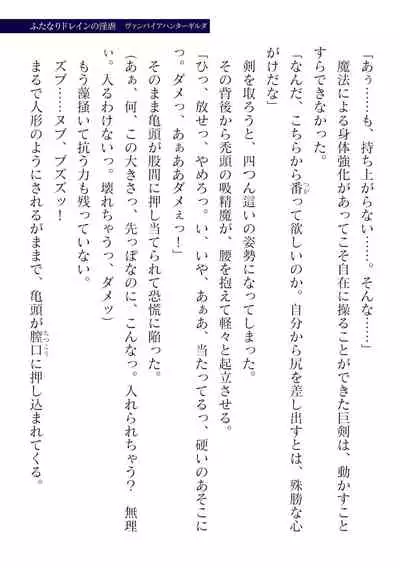 ふたなりドレインの淫虐 ヴァンパイアハンターギルダ
「あぅ……も、持ち上がらない……。そんな……」
魔法による身体強化があってこそ自在に操ることができた巨剣は、動かすこと
すらできなかった。
「なんだ、こちらから番って欲しいのか。自分から尻を差し出すとは、殊勝な心
つが
がけだな」
剣を取ろうと、四つん這いの姿勢になってしまった。
その背後から禿頭の吸精魔が、腰を抱えて軽々と起立させる。
「ひっ、放せっ、やめろっ。い、いや、あぁあ、当たってるっ、硬いのあそこに
っ。ダメっ、あぁああダメぇっ！」
そのまま亀頭が股間に押し当てられて恐慌に陥った。
(あぁ、何、この大きさっ、先っぽなのに、こんなっ。入れられちゃう？　無理
ぃ。入るわけないっ。壊れちゃうっ、ダメッ)
もう藻掻いて抗う力も残っていない。
ズブ……ヌブ、ブズズッ！
まるで人形のようにされるがままで、亀頭が膣口に押し込まれてくる。
ちつこう